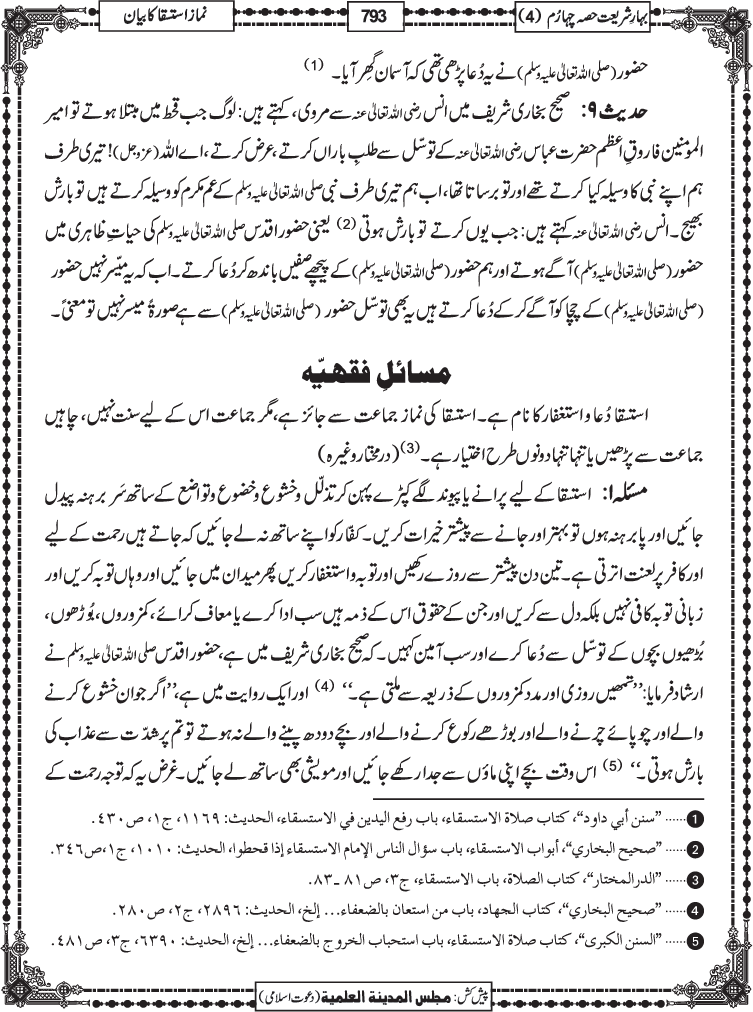 بہارِ شریعت حصہ چہارم (4)
793
نمازِ استسقا کا بیان
حضور (صلی اللہ تعالیٰ علیہ وسلم) نے یہ دُعا پڑھی تھی کہ آسمان گھِر آیا۔ (1)
حدیث ۹: صحیح بخاری شریف میں انس رضی اللہ تعالیٰ عنہ سے مروی، کہتے ہیں: لوگ جب قحط میں مبتلا ہوتے تو امیر
المومنین فاروقِ اعظم حضرت عباس رضی اللہ تعالیٰ عنہ کے توسّل سے طلبِ باراں کرتے، عرض کرتے، اے اللہ (عزوجل)! تیری طرف
ہم اپنے نبی کا وسیلہ کیا کرتے تھے اور تو برساتا تھا، اب ہم تیری طرف نبی صلی اللہ تعالیٰ علیہ وسلم کے عم مکرم کو وسیلہ کرتے ہیں تو بارش
بھیج۔ انس رضی اللہ تعالیٰ عنہ کہتے ہیں: جب یوں کرتے تو بارش ہوتی (2) یعنی حضور اقدس صلی اللہ تعالیٰ علیہ وسلم کی حیاتِ ظاہری میں
حضور (صلی اللہ تعالیٰ علیہ وسلم) آگے ہوتے اور ہم حضور (صلی اللہ تعالیٰ علیہ وسلم) کے پیچھے صفیں باندھ کر دُعا کرتے۔ اب کہ یہ میسّر نہیں حضور
(صلی اللہ تعالیٰ علیہ وسلم) کے چچا کو آگے کر کے دُعا کرتے ہیں یہ بھی توسّل حضور (صلی اللہ تعالیٰ علیہ وسلم) سے ہے صورۃً میسر نہیں تو معنیً۔
مسائلِ فقهیّه
استسقا دُعا و استغفار کا نام ہے۔ استسقا کی نماز جماعت سے جائز ہے، مگر جماعت اس کے لیے سنت نہیں، چاہیں
جماعت سے پڑھیں یا تنہا تنہا دونوں طرح اختیار ہے۔ (3) (درمختار وغیرہ)
مسئلہ ۱: استسقا کے لیے پرانے یا پیوند لگے کپڑے پہن کر تذلّل و خشوع و خضوع و تواضع کے ساتھ سَر برہنہ پیدل
جائیں اور پا برہنہ ہوں تو بہتر اور جانے سے پیشتر خیرات کریں۔ کفّار کو اپنے ساتھ نہ لے جائیں کہ جاتے ہیں رحمت کے لیے
اور کافر پر لعنت اترتی ہے۔ تین دن پیشتر سے روزے رکھیں اور توبہ و استغفار کریں پھر میدان میں جائیں اور وہاں توبہ کریں اور
زبانی توبہ کافی نہیں بلکہ دل سے کریں اور جن کے حقوق اس کے ذمہ ہیں سب ادا کرے یا معاف کرائے، کمزوروں، بُوڑھوں،
بُڑھیوں بچوں کے توسّل سے دُعا کرے اور سب آمین کہیں۔ کہ صحیح بخاری شریف میں ہے، حضور اقدس صلی اللہ تعالیٰ علیہ وسلم نے
ارشاد فرمایا: ’’تمھیں روزی اور مدد کمزوروں کے ذریعہ سے ملتی ہے۔‘‘ (4) اور ایک روایت میں ہے، ’’اگر جوان خشوع کرنے
والے اور چوپائے چرنے والے اور بوڑھے رکوع کرنے والے اور بچے دودھ پینے والے نہ ہوتے تو تم پر شدّت سے عذاب کی
بارش ہوتی۔‘‘ (5) اس وقت بچے اپنی ماؤں سے جدا رکھے جائیں اور مویشی بھی ساتھ لے جائیں۔ غرض یہ کہ توجہ رحمت کے
1 ...... ”سنن أبي داود“، كتاب صلاة الاستسقاء، باب رفع اليدين في الاستسقاء، الحديث: ١١٦٩، ج١، ص٤٣٠.
2 ...... ”صحيح البخاري“، أبواب الاستسقاء، باب سؤال الناس الإمام الاستسقاء إذا قحطوا، الحديث: ١٠١٠، ج١، ص٣٤٦.
3 ...... ”الدرالمختار“، كتاب الصلاة، باب الاستسقاء، ج٣، ص٨١ـ٨٣.
4 ...... ”صحيح البخاري“، كتاب الجهاد، باب من استعان بالضعفاء... إلخ، الحديث: ٢٨٩٦، ج٢، ص٢٨٠.
5 ...... ”السنن الكبرى“، كتاب صلاة الاستسقاء، باب استحباب الخروج بالضعفاء... إلخ، الحديث: ٦٣٩٠، ج٣، ص٤٨١.
پیش کش: مجلس المدینة العلمیة (دعوتِ اسلامی)